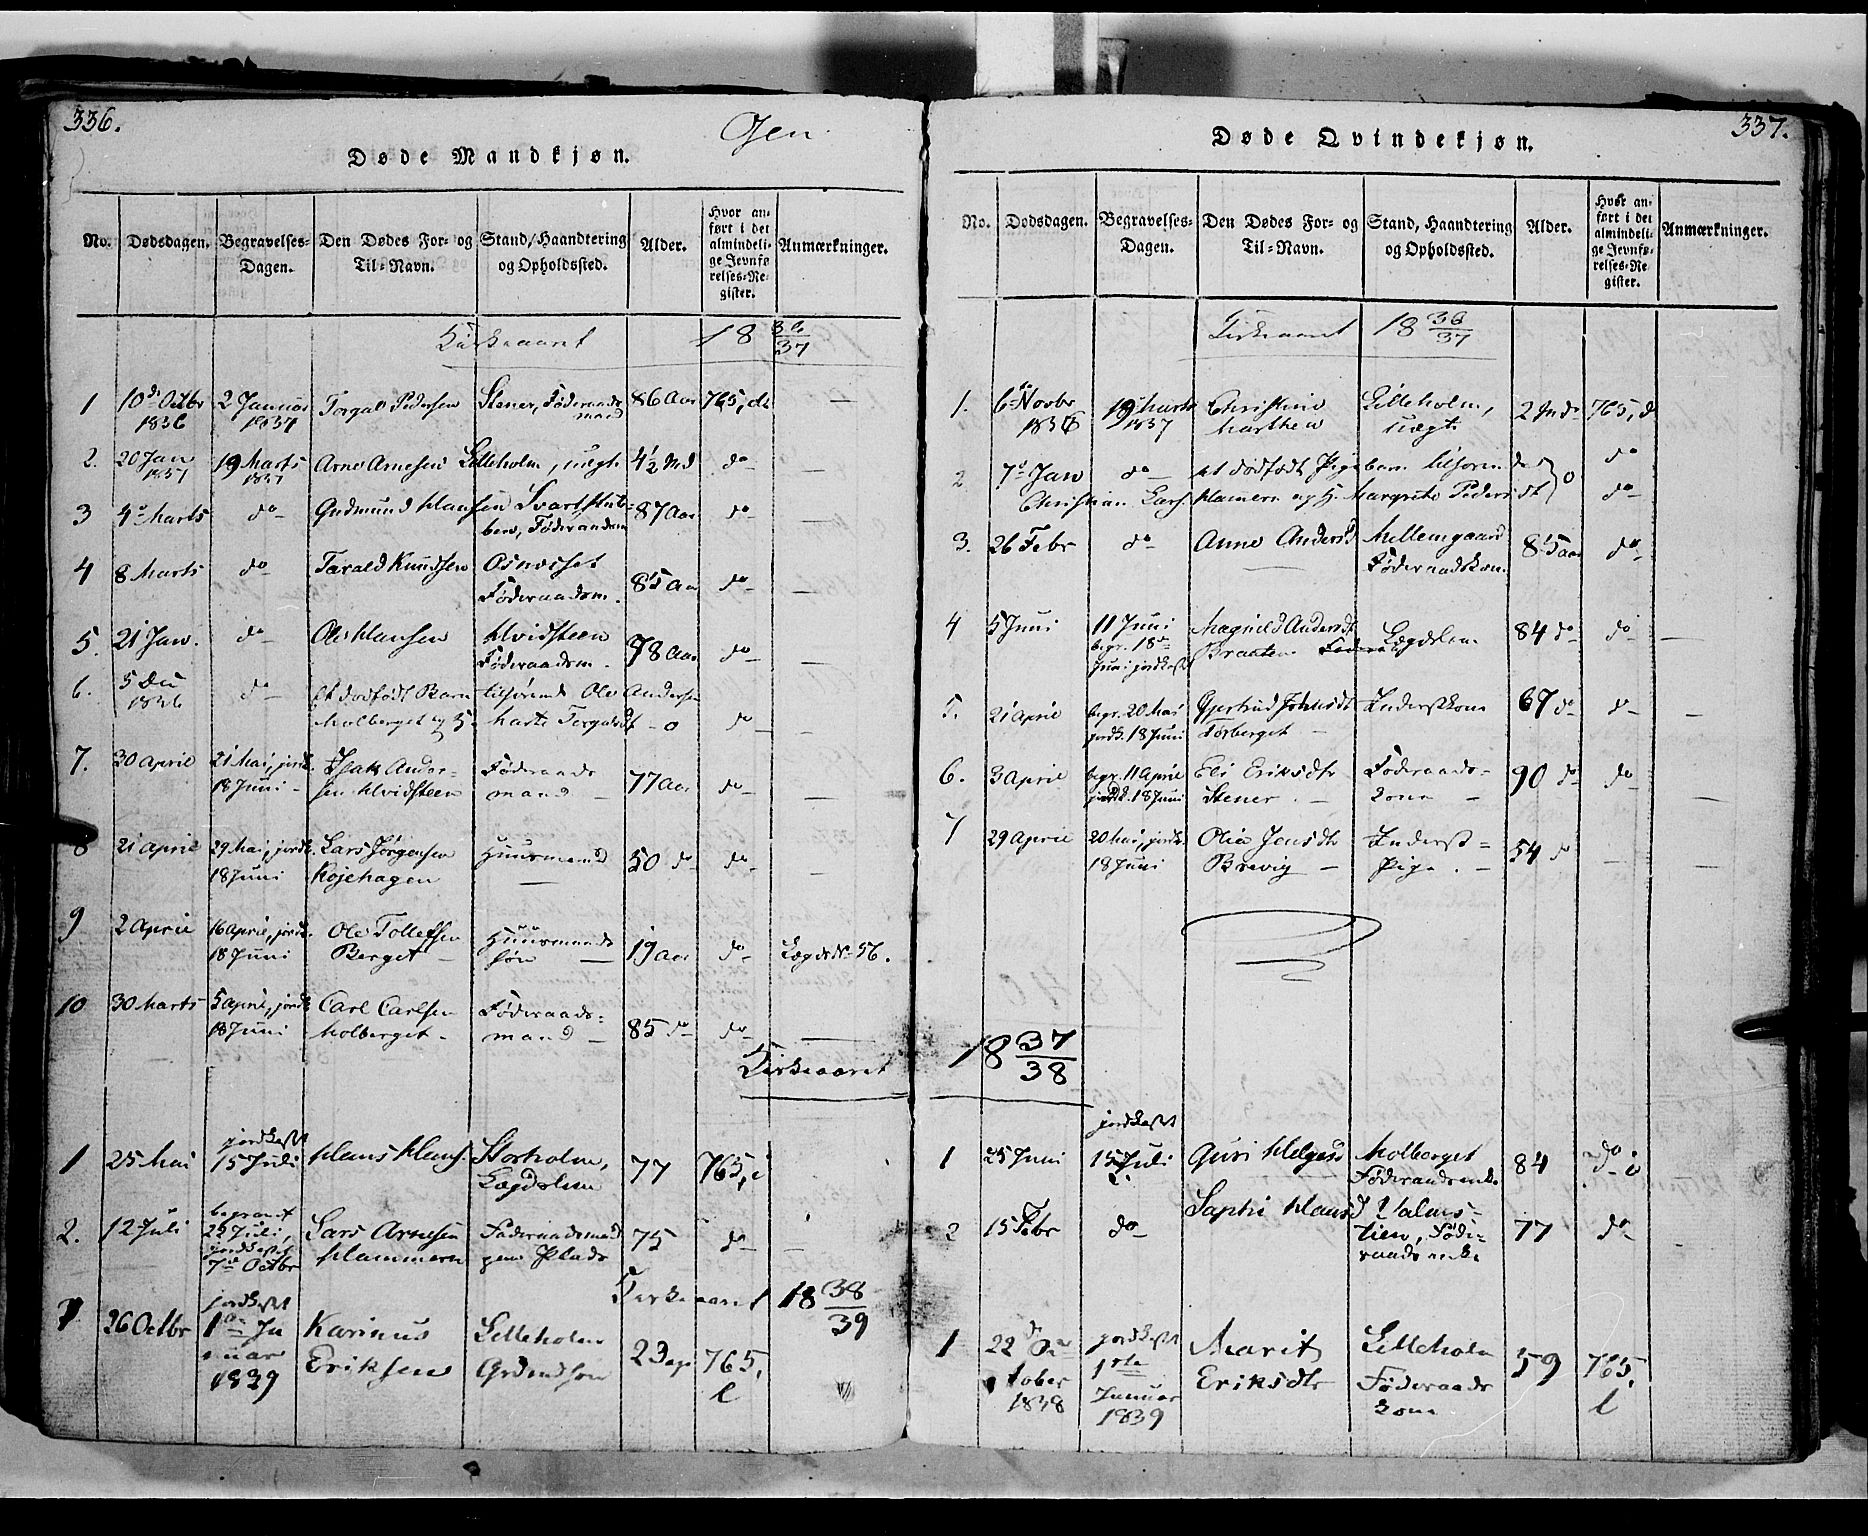 336.
Øien
Døde Mandkjøn.
No. Dødsdagen. Begravelses-Dagen. Den Dødes For- og Til-Navn. Stand, Haandtering og Opholdssted. Alder. Hvor anført i det almindelige Jevnførelses-Register. Anmærkninger.
Kirkeaaret 18 36/37
1 10de Octbr 1836 2 Januar 1837 Torgal Pedersen Stener, Føderaadsmand 86 Aar 765, d.
2. 20 Jan 1837 19 Marts 1837 Arne Arnesen Lilleholm, uægte 4½ Md do
3 4de Marts do Gudmund Hansen Svartstubben, Føderaadsm 87 Aar do
4 8 Marts do Tarald Knudsen Osnæsset Føderaadsm. 85 Aar do
5. 21 Jan. do Ole Hansen Hvidsteen Føderaadsm. 78 Aar do
6. 5 Dec 1836 do et dødfødt Barn tilhørende Ole Andersen
Molberget og H. Marte Torgalsdt - 0 do
7. 30 April 21 Mai, jordk. 18 Juni Isak Andersen Hvidsteen Føderaadsmand 77 Aar do
8 21 April 29 Mai, jordk. 18 Juni Lars Jørgensen Kojehagen Huusmand 50 do do
9 2 April 16 April, jordk. 18 Juni Ole Tollefsen Berget Huusmands søn 19 Aar do Lægds No 56.
10 30 Marts 5 April, jordk. 18 Juni Carl Carlsen Molberget Føderaadsmand 85 do do
Kirkeaaret
1 25 Mai jordkastet 15 Juli Hans Hans. Storholm, Lægdslem 77 765, i
2. 12 Juli begravet 22 Juli, jordkastet 7de Octbr Lars Arnesen Hammern Føderaadsmand paa Plads 75 do
Kirkeaaret 18 38/39
1 26 Octbr jordkastet 1ste Januar 1839 Karinus Eriksen Lilleholm Grdmdsøn 23 765, l
337.
Døde Qvindekjøn.
No. Dødsdagen. Begravelses-Dagen. Den Dødes For- og Til-Navn. Stand, Haandtering og Opholdssted. Alder. Hvor anført i det almindelige Jevnførelses-Register. Anmærkninger.
Kirkeaaret 18 36/37
1. 6te Novbr 1836 19 Marts 1837 Christine Marthea Lilleholm, uægte 2 Mdr 765, d
2 7de Jan do et dødfødt Pigebarn tilhørende do
Christian Lars. Hamern og H. Margrete Pedersdt 0 do
3. 26 Febr do Anne Andersd Mellemgaard Føderaadskone 85 Aar do
4 5 Juni 11 Juni begr. 18de Juni jordkastet Magnild Andersdt Braaten Lægdslem 84 do do
5. 21 April begr. 20 Mai jordk. 18 Juni Gjertrud Johnsdt Torberget Inderstkone 67 do do
6. 3 April begr. 11 April jordk. 18 Juni Eli Eriksdtr Stener Føderaadskone 90 do do
7 29 April 20 Mai, jordk. 18 Juni Olia Jensdtr Brevig Inderst Pige. 54 do
18 37/38
1 25 Juni jordkastet 15 Juli Guri Helgesd Molberget Føderaadsenke 84 do i
2 15 Febr do Sophi Hansd Valmstien, Føderaadsenke 77 do
1 22de October 1838 jordkastet 1ste Januar 1839 Marit Eriksdtr Lilleholm Føderaadskone 59 765, l